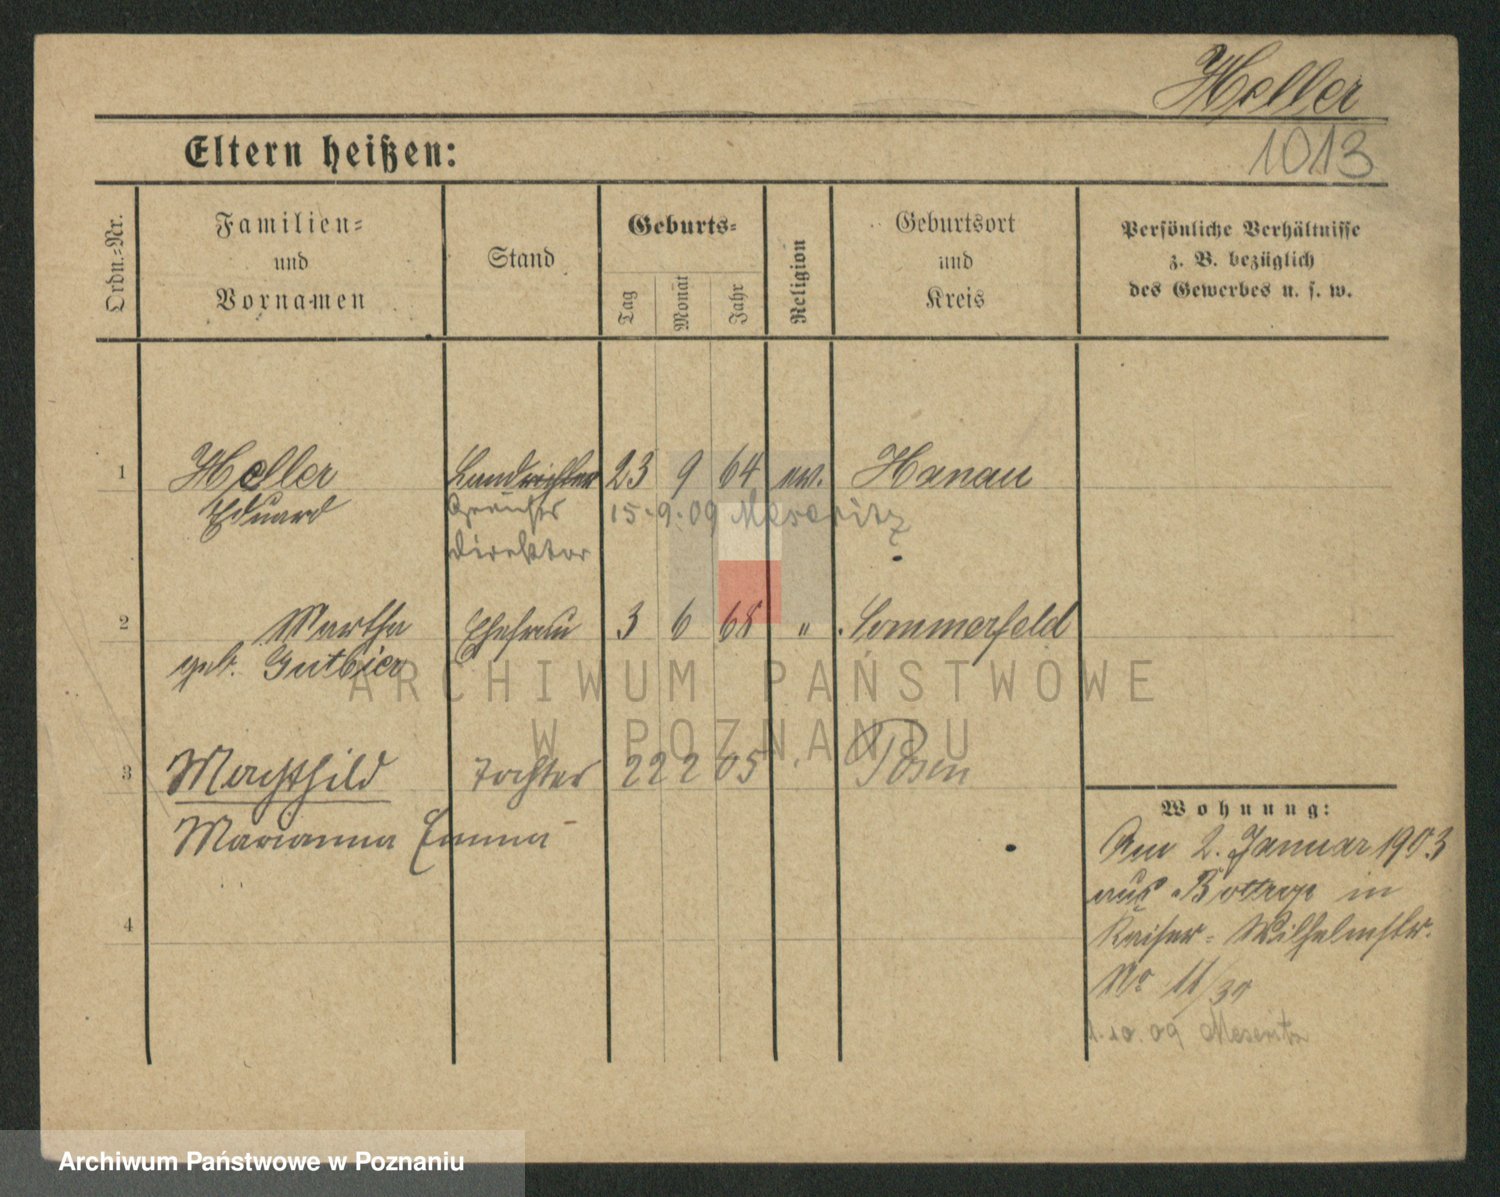 Heller
1013
Eltern heißen:
Ordn.-Nr.
Familien-
und
Vornamen
Stand
Geburts-
Tag
Monat
Jahr
Religion
Geburtsort
und
Kreis
Persönliche Verhältnisse
z. B. bezüglich
des Gewerbes u. s. w.
1 Heller Landrichter 23 9 64 ev. Hanau
Eduard
15.9.09 Meseritz
direktor
2 Martha Ehefrau 3 6 68 " Sommerfeld
geb. Gutbier
ARCHIWUM PAŃSTWOWE
W POZNANIU
3 Mechthild Tochter 22 2 05 Posen
Marianna Emma
Wohnung:
Am 2. Januar 1903
aus Bottrop in
Kaiser-Wilhelmstr.
No 11/39
1.10.09 Meseritz
4
Archiwum Państwowe w Poznaniu